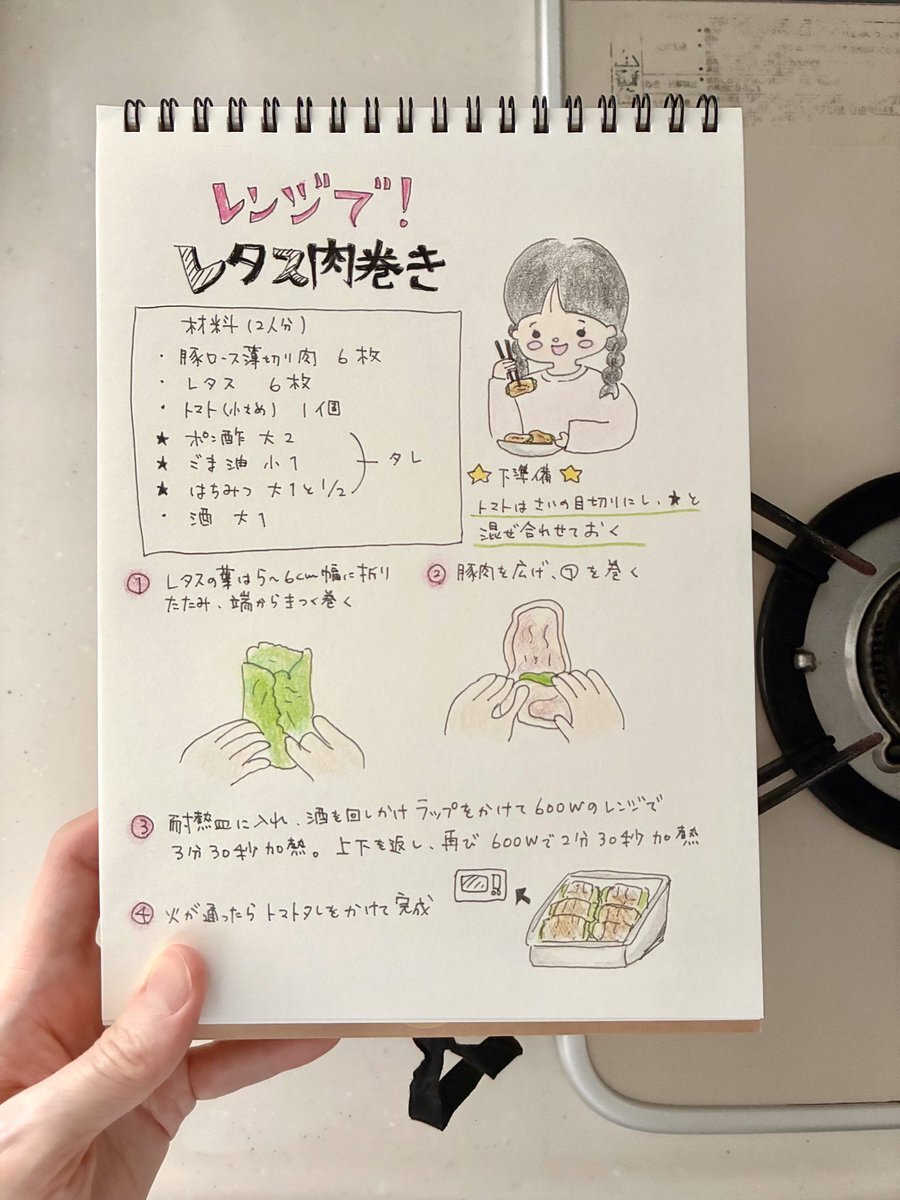 レンジで!
レタス肉巻き
材料(2人分)
・豚ロース薄切り肉 6枚
・レタス 6枚
・トマト(小さめ) 1個
★ ポン酢 大2
★ ごま油 小1
★ はちみつ 大1と1/2
タレ
・酒 大1
⭐下準備⭐
トマトはさいの目切りにし、★と
混ぜ合わせておく
① レタスの葉は5~6cm幅に折り
たたみ、端からきつく巻く
② 豚肉を広げ、①を巻く
③ 耐熱皿に入れ、酒を回しかけラップをかけて600Wのレンジで
3分30秒加熱。上下を返し、再び600Wで2分30秒加熱
④ 火が通ったらトマトタレをかけて完成